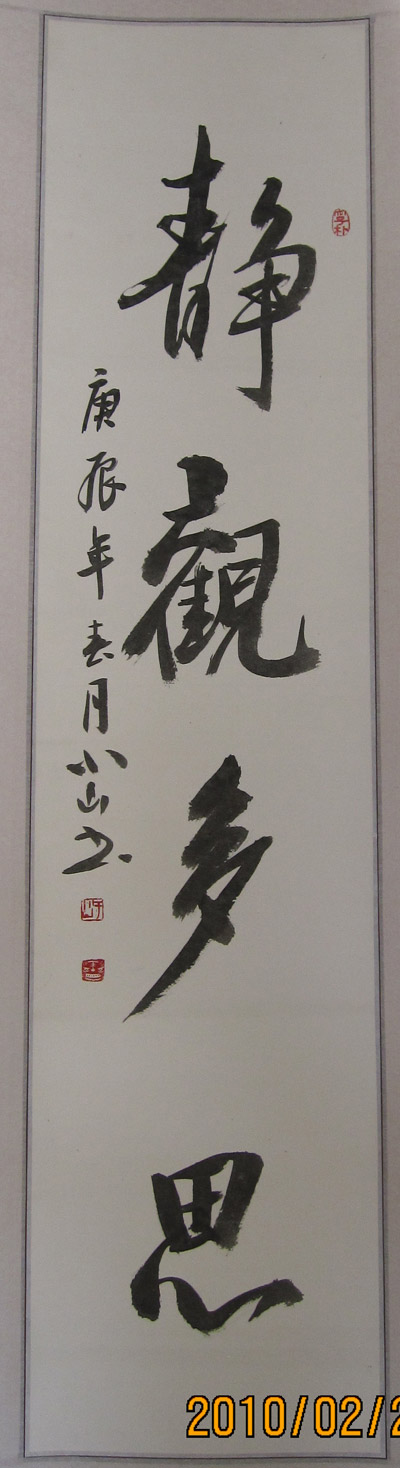 静觀多思
庚辰年春月小山书
2010/02/2